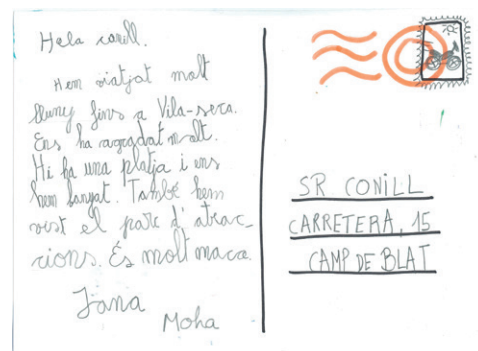 Hola conill.
Hem viatjat molt
lluny fins a Vila-seca.
Ens ha agradat molt.
Hi ha una platja i ens
hem banyat. També hem
vist el parc d'atrac-
cions. És molt maca.
Jana
Moha
SR CONILL
CARRETERA, 15
CAMP DE BLAT